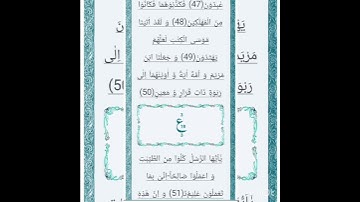 عٰبِدُوْنَ(47) فَكَذَّبُوْهُمَا فَكَانُوْا
مِنَ الْمُهْلَكِیْنَ(48) وَ لَقَدْ اٰتَیْنَا
مُوْسَى الْكِتٰبَ لَعَلَّهُمْ
یَهْتَدُوْنَ(49) وَ جَعَلْنَا ابْنَ
مَرْیَمَ وَ اُمَّهٗۤ اٰیَةً وَّ اٰوَیْنٰهُمَاۤ اِلٰى
رَبْوَةٍ ذَاتِ قَرَارٍ وَّ مَعِیْنٍ(50)
ع
یٰۤاَیُّهَا الرُّسُلُ كُلُوْا مِنَ الطَّیِّبٰتِ
وَ اعْمَلُوْا صَالِحًاؕ-اِنِّیْ بِمَا
تَعْمَلُوْنَ عَلِیْمٌﭤ(51) وَ اِنَّ هٰذِهٖۤ